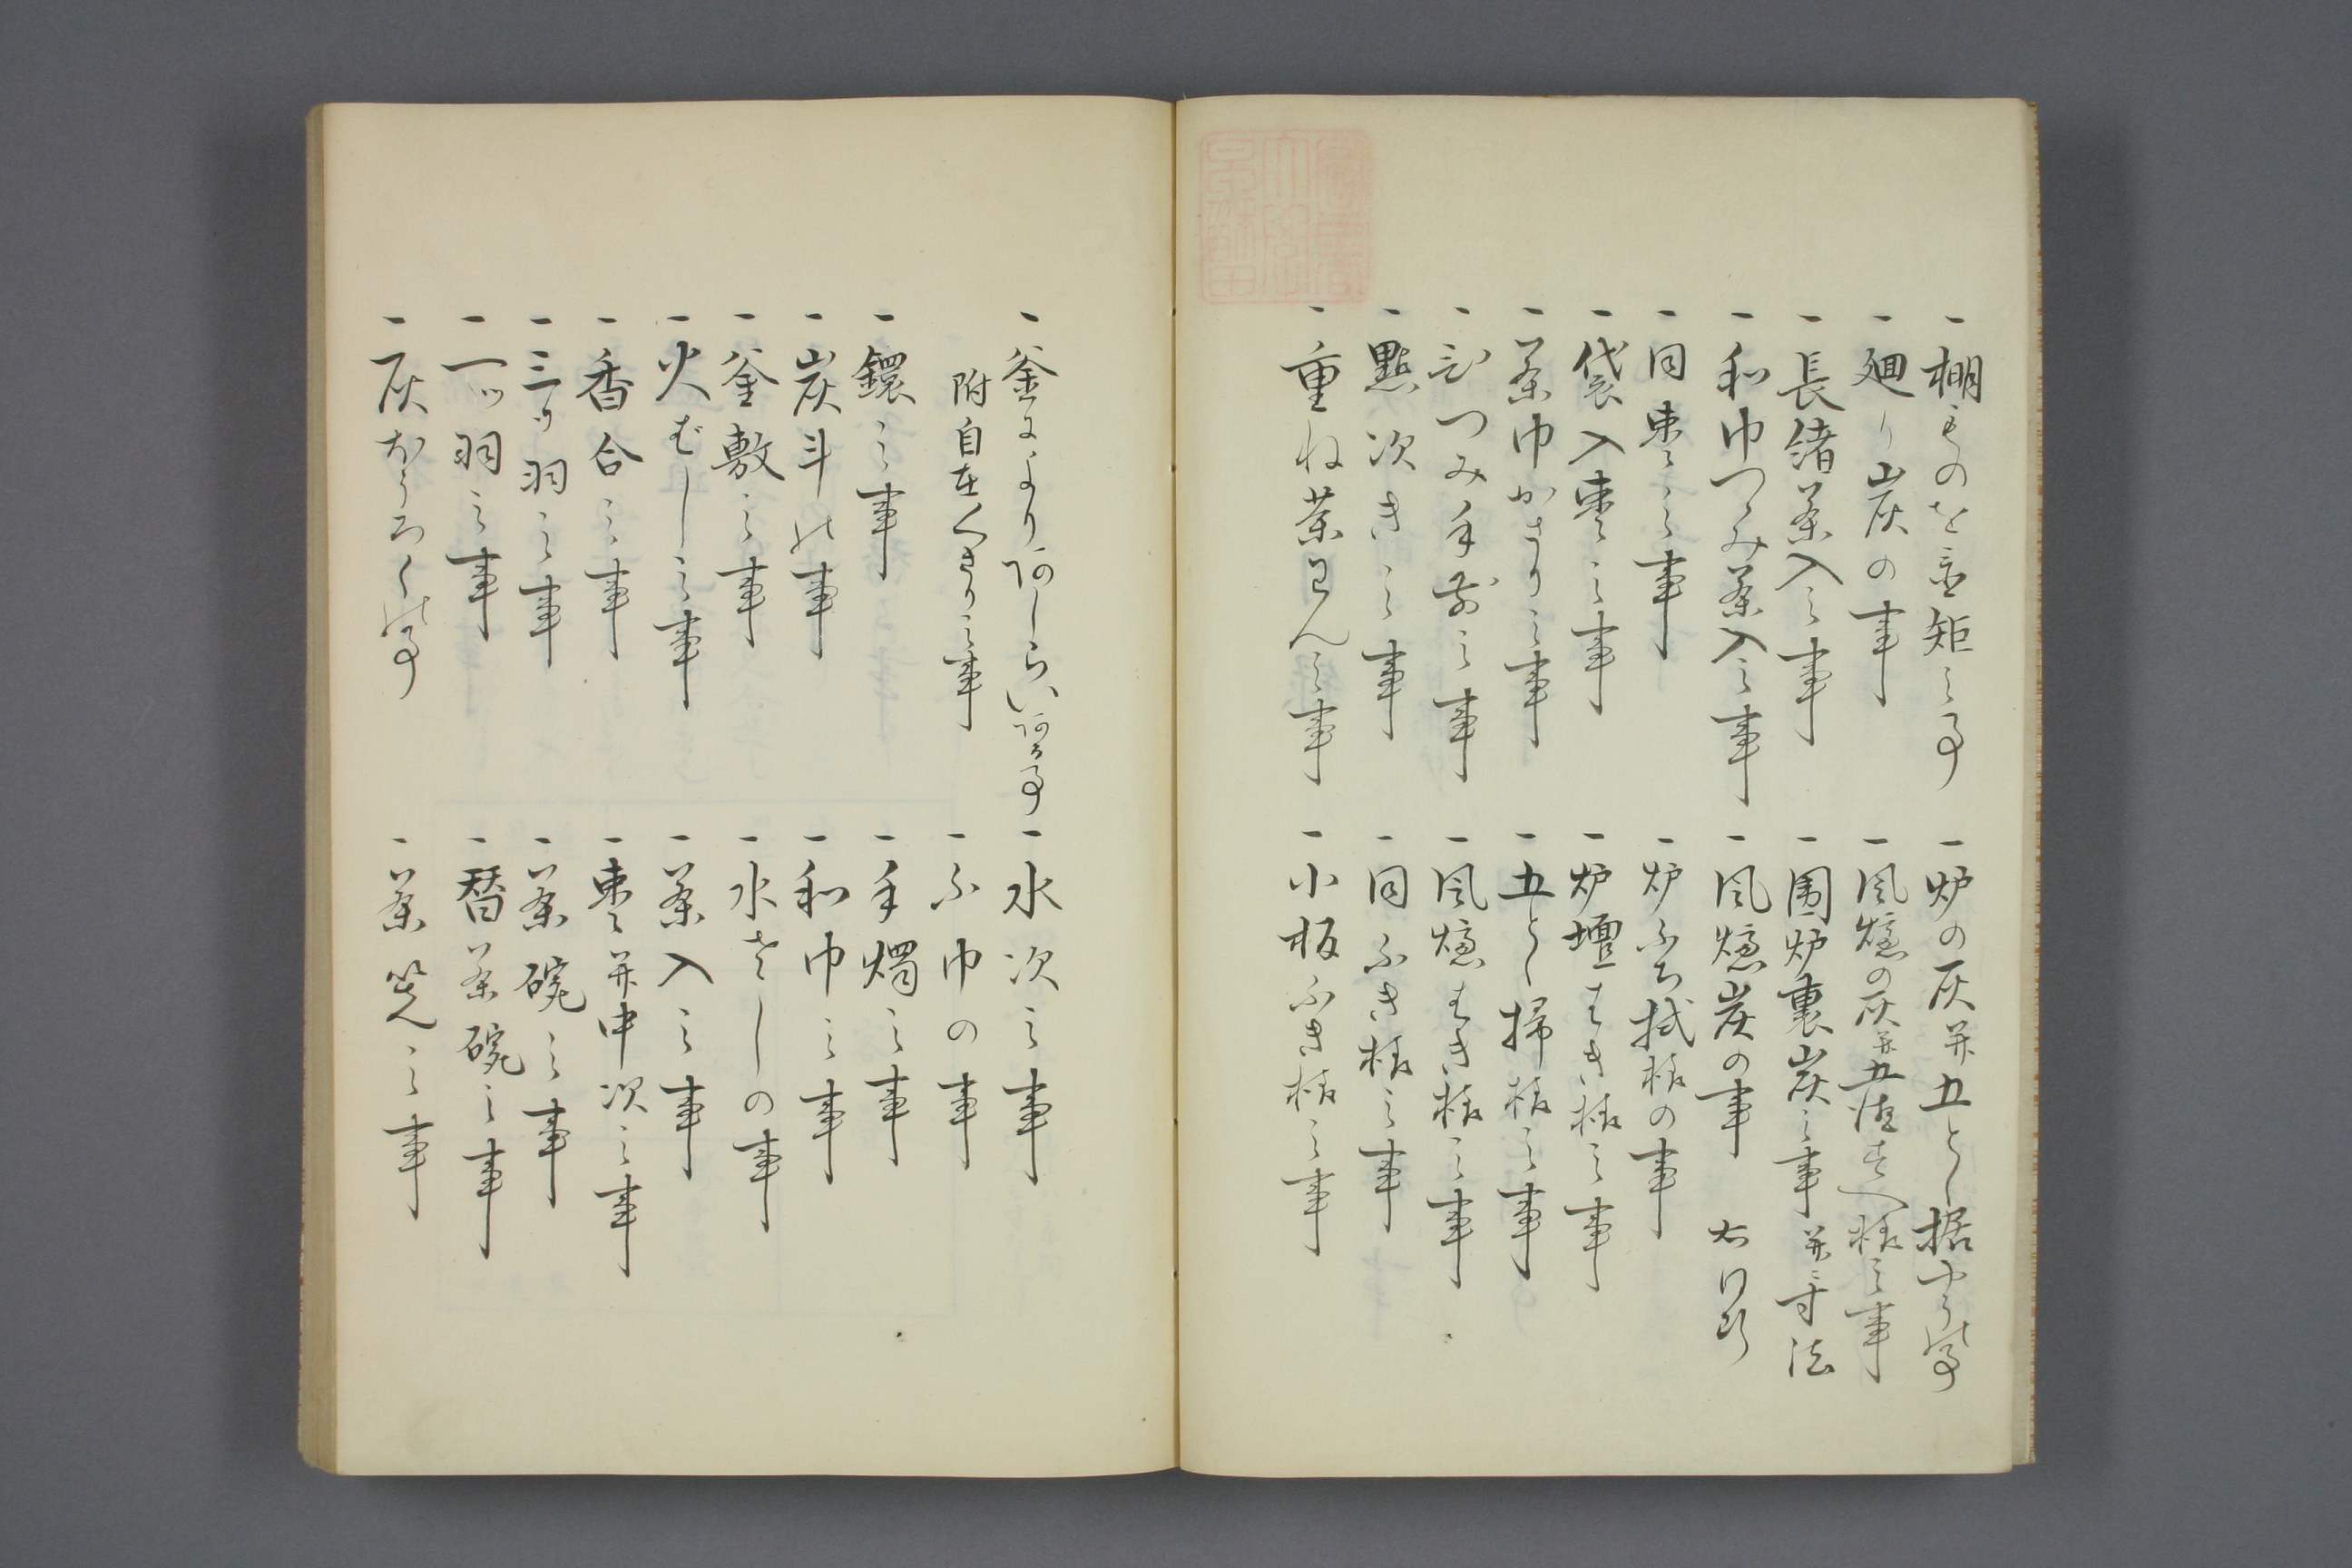 一棚ものを置矩之事
一廻り炭の事
一長緒茶入之事
一和巾つゝみ茶入之事
一同棗之事
一袋入棗之事
一茶巾かさり之事
つみ手前之事
一點次き之事
一重ね茶わん之事
一炉の灰并五とく据やうの事
一風爐の灰并五徳すへ様之事
一囲炉裏炭之事并ニ寸法
一風爐炭の事
一炉ふち拭様の事
一炉壇はき様之事
一五とく掃様之事
一風爐はき様之事
一同ふき様之事
一小板ふき様之事
一釜によりあしらいある事
附自在くさり之事
一鐶之事
一炭斗の事
一釜敷之事
一火ばし之事
一香合之事
一三ツ羽之事
一一ツ羽之事
一灰ほうろくの事
一水次之事
一ふ巾の事
一手燭之事
一和巾之事
一水さしの事
一茶入之事
一棗并中次之事
一茶碗之事
一替茶碗之事
一茶筅之事